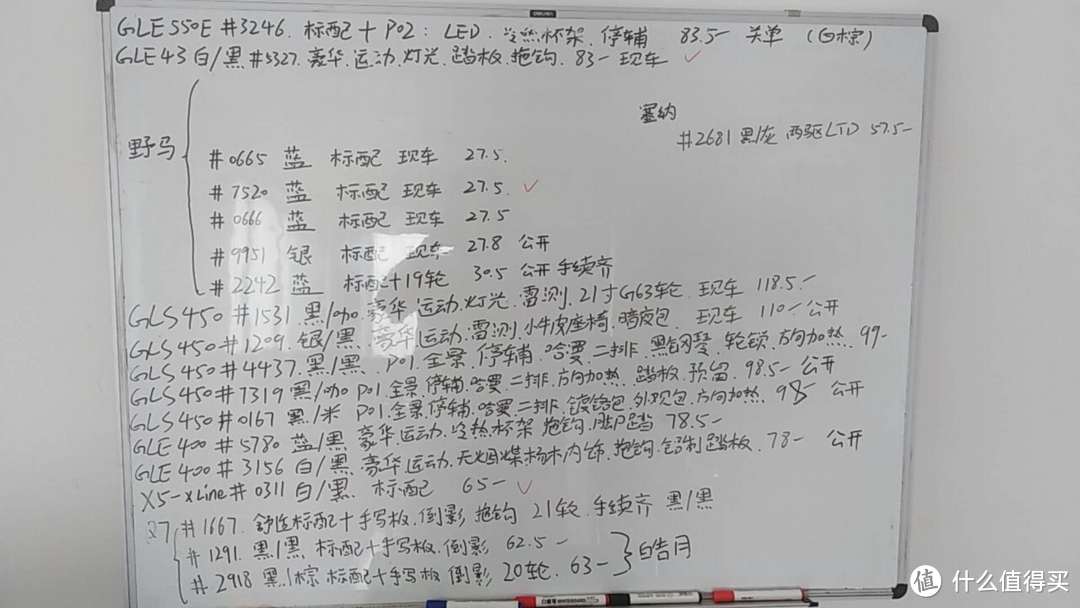 GLE550E #3246. 标配+P02: LED. 冷热杯架. 停辅 83.5— 关单 (白棕)
GLE43 白/黑 #5327. 豪华. 运动. 灯光. 踏板. 拖钩. 83— 现车 ✓
塞纳
#2681 黑/灰 两驱LTD 57.5—
野马
#0665 蓝 标配 现车 27.5.
#7520 蓝 标配 现车 27.5. ✓
#0666 蓝 标配 现车 27.5
#9951 银 标配 现车 27.8 公开
#2242 蓝 标配+19轮 30.5 公开 手续齐
GLS450 #1531 黑/咖 豪华 运动. 灯光. 雷测. 21寸G63轮. 现车 118.5—
GLS450 #1209. 银/黑. 豪华运动. 雷测. 小牛皮座椅. 暗夜包. 现车 110— 公开
GLS450 #4437. 黑/黑. P01. 全景. 停辅. 哈曼. 二排. 黑钢琴. 轮锁. 方向加热. 99—
GLS450 #7319 黑/咖 P01. 全景. 停辅. 哈曼. 二排. 方向加热. 踏板. 预留. 98.5— 公开
GLS450 #0167 黑/米 P01. 全景. 停辅. 哈曼. 二排. 镀铬包. 外观包. 方向加热. 98— 公开
GLE400 #5780 蓝/黑 豪华运动. 冷热杯架 拖钩. 脚踏 78.5—
GLE400 #3156 白/黑. 豪华运动. 无烟煤杨木内饰. 拖钩. 铝制踏板. 78— 公开
X5-xLine #0311 白/黑. 标配 65— ✓
Q7
#1667. 舒适标配+手写板. 倒影 拖钩 21轮. 手续齐 黑/黑
#1291. 黑/黑 标配+手写板. 倒影 62.5—
#2918 黑/棕 标配+手写板 倒影 20轮. 63—
皓月
值 什么值得买